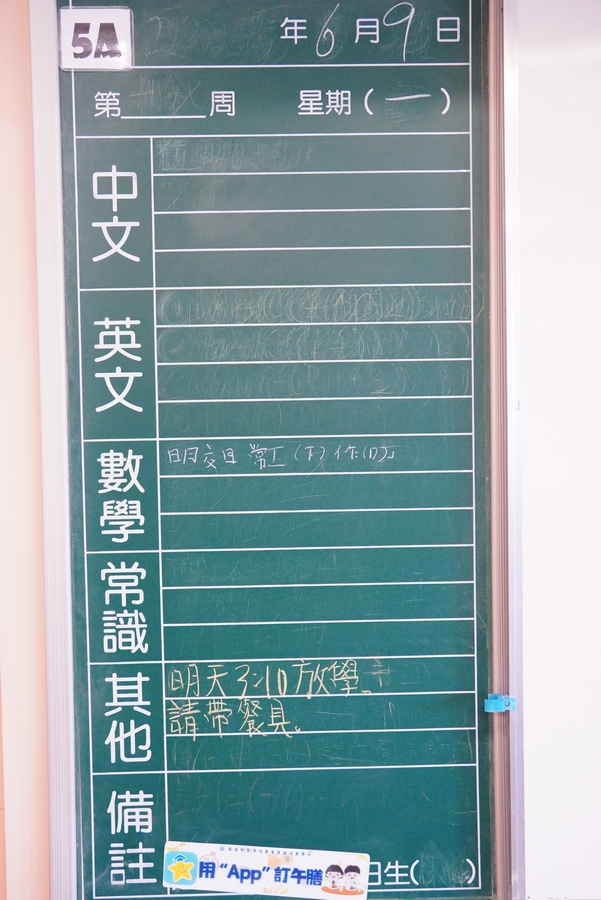 5A
年6月9日
第 周 星期(一)
中文
英文
數學
明交日常工(下)作(17)
常識
其他
明天3:10放學。
請帶餐具。
備註
用“App”訂午膳
日生( )